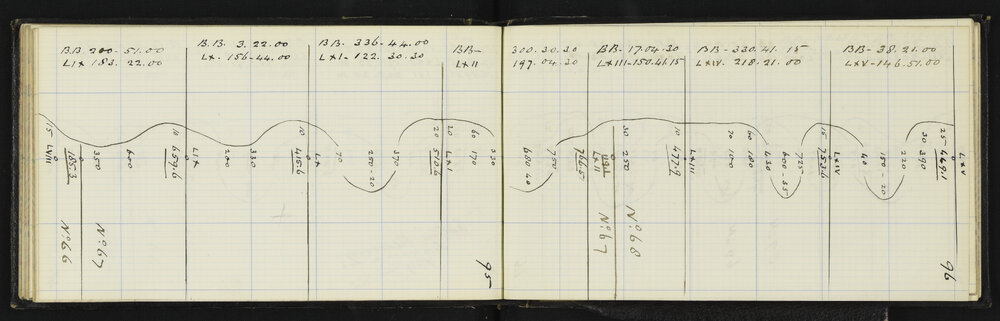 BB 200-51.00
LIX 183. 22.00
B.B. 3.22.00
LX. 156-44.00
BB. 336-44.00
LXI-122.30.30
BB-
LXII
300.30.30
197.04.30
BB-17.04.30
LXIII-150.41.15
BB-330.41.15
LXIV. 218.21.00
BB-38.21.00
LXV-146.51.00
15 LVIII
185.3
350
600
10 659.6
LIX
200
330
10 415.6
LX
70
250-20
390
20 510.6
20 LXI
60 170
330
680 40
750
766.5
LXII
30 250
10 477.9
LXIII
70 100
60 180
430
600-55
725
15 753.6
LXIV
40
150-20
220
30 390
25 469.1
LXV
No. 66
No. 67
95
No. 67
No. 68
96